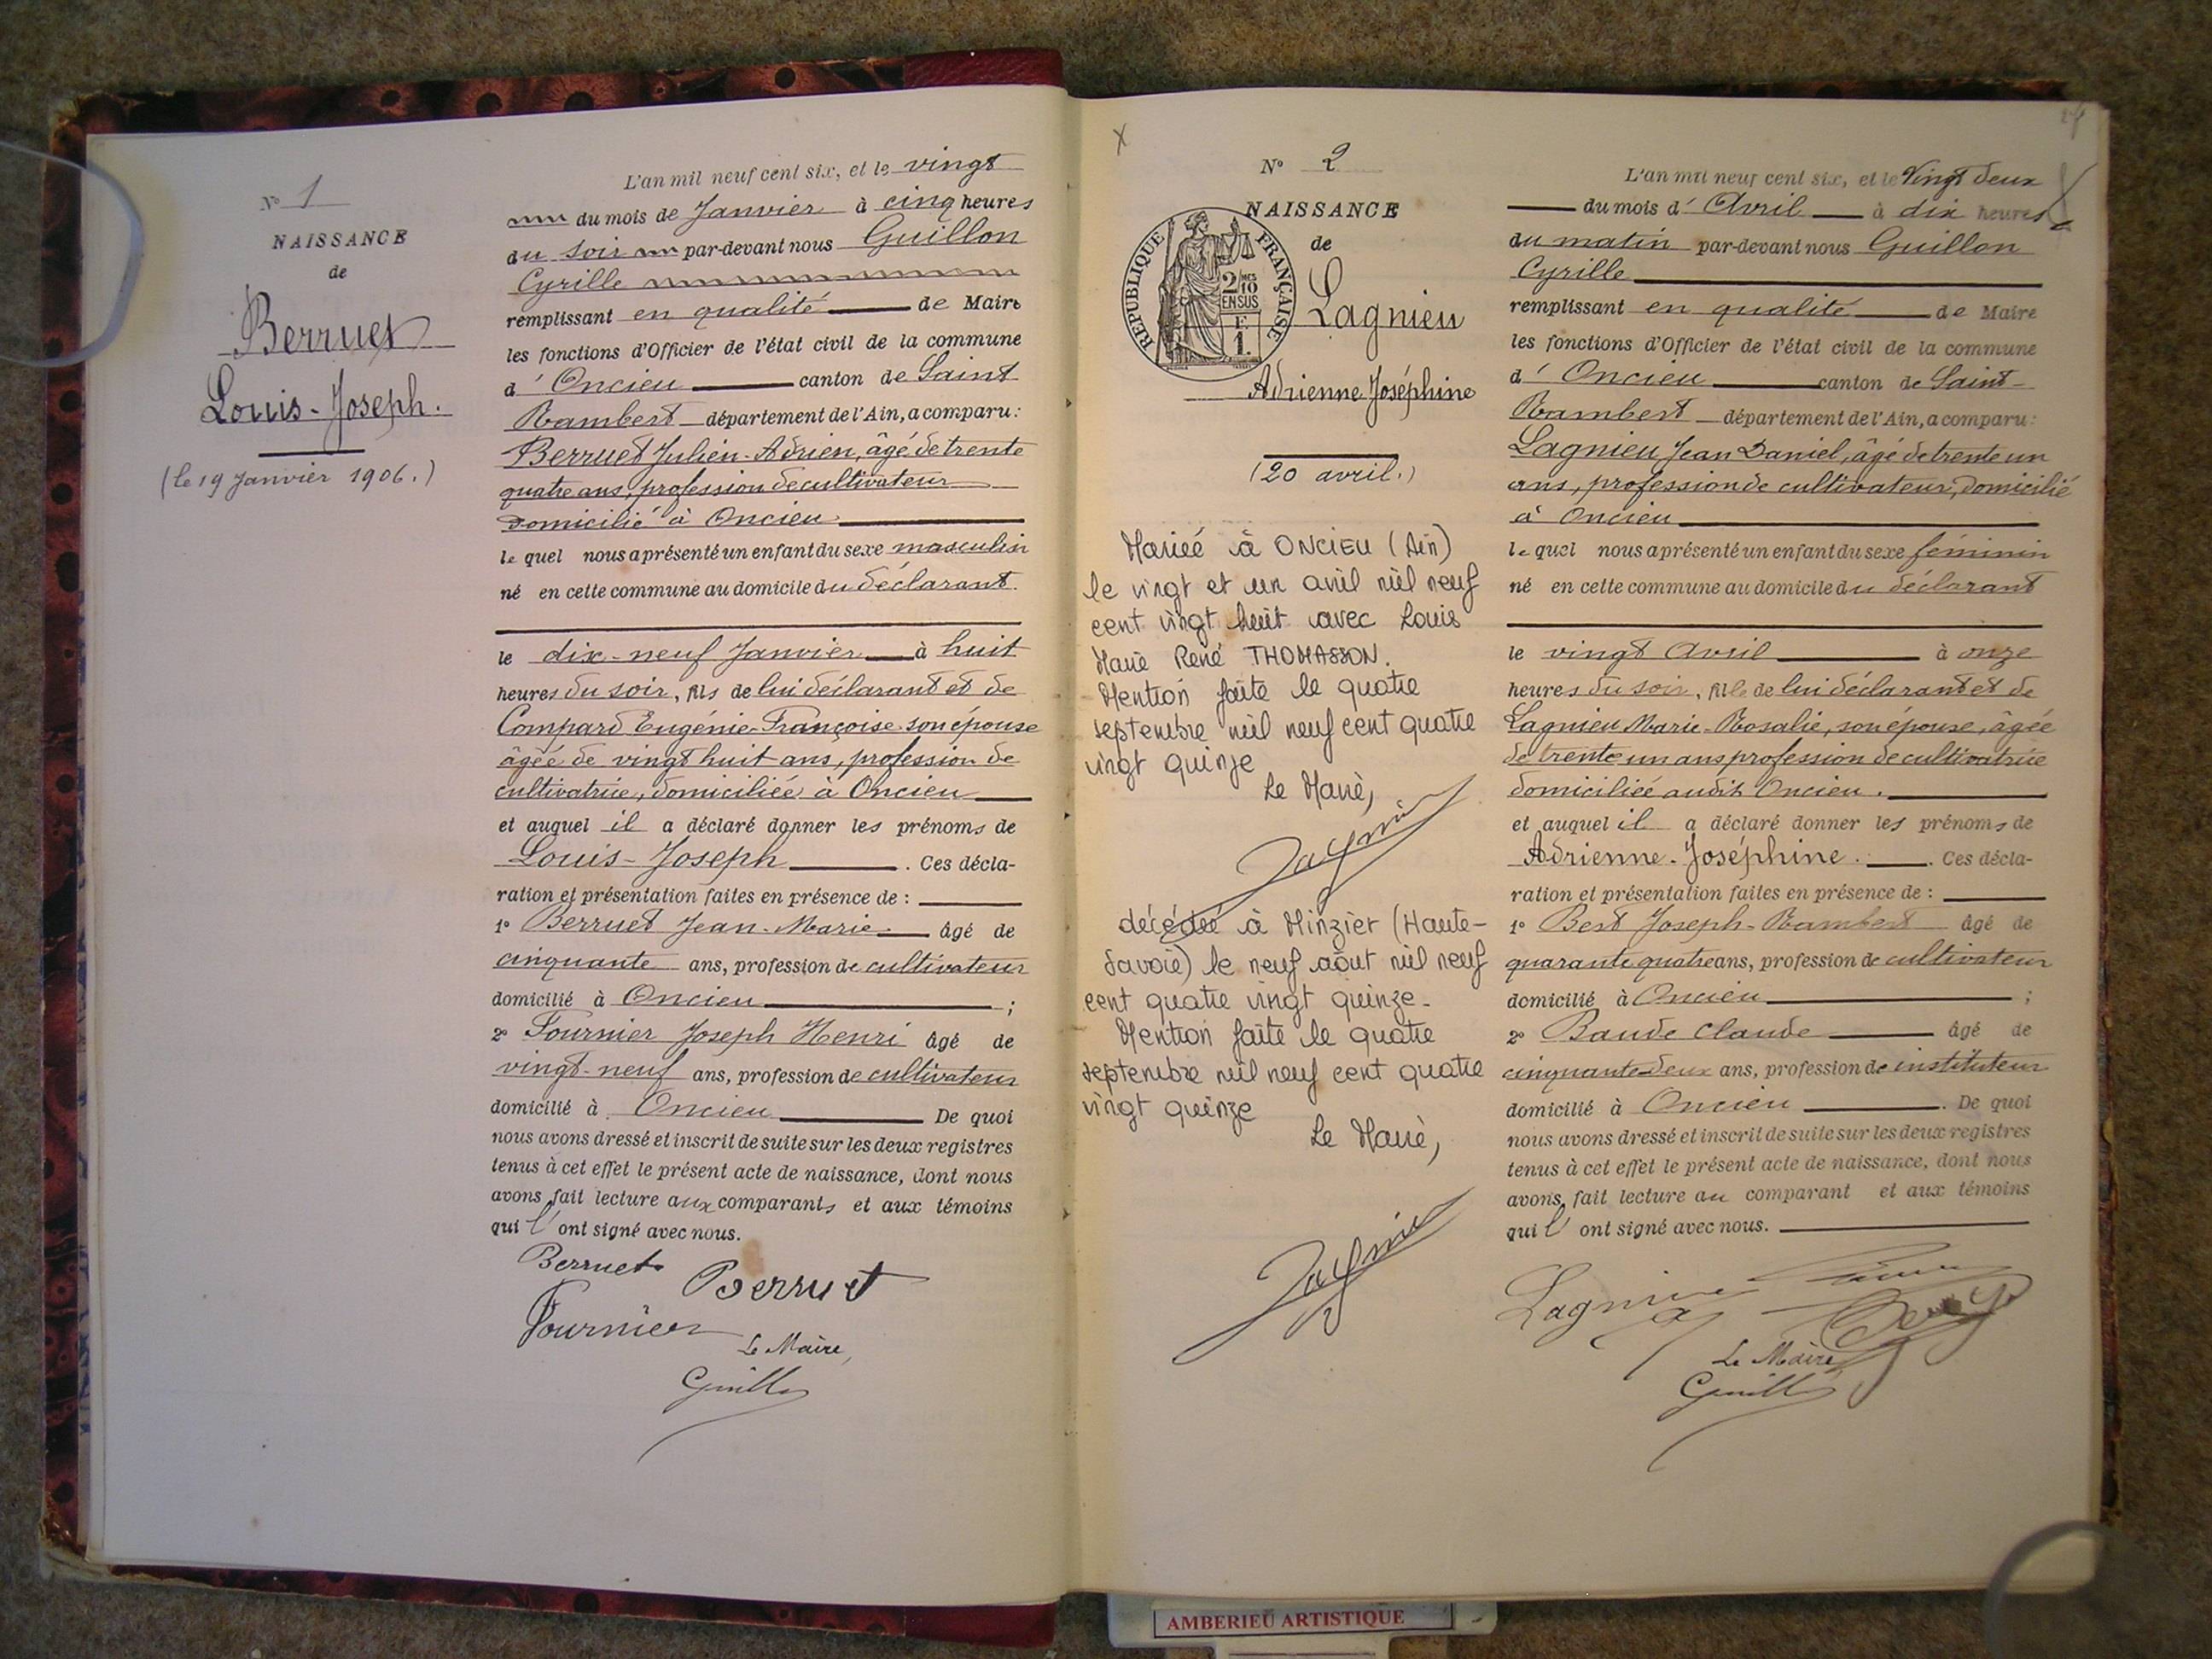 N° 1
NAISSANCE
de
Berruet
Louis-Joseph.
(le 19 Janvier 1906.)
L'an mil neuf cent six, et le vingt
du mois de Janvier à cinq heures
du soir par-devant nous Guillon
Cyrille
remplissant en qualité de Maire
les fonctions d'Officier de l'état civil de la commune
d' Oncieu canton de Saint
Rambert département de l'Ain, a comparu:
Berruet Julien-Adrien, âgé de trente
quatre ans, profession de cultivateur
domicilié à Oncieu
le quel nous a présenté un enfant du sexe masculin
né en cette commune au domicile du déclarant.
le dix-neuf Janvier à huit
heures du soir, fils de lui déclarant et de
Compard Eugénie-Françoise son épouse
âgée de vingt huit ans, profession de
cultivatrice, domiciliée à Oncieu
et auquel il a déclaré donner les prénoms de
Louis-Joseph. Ces décla-
ration et présentation faites en présence de :
1° Berruet Jean-Marie âgé de
cinquante ans, profession de cultivateur
domicilié à Oncieu ;
2° Fournier Joseph Henri âgé de
vingt-neuf ans, profession de cultivateur
domicilié à Oncieu De quoi
nous avons dressé et inscrit de suite sur les deux registres
tenus à cet effet le présent acte de naissance, dont nous
avons fait lecture aux comparants et aux témoins
qui l'ont signé avec nous.
Berruet Berruet
Fournier
Le Maire,
Guillon
X
N° 2
NAISSANCE
de
RÉPUBLIQUE FRANÇAISE
2/10
EN SUS
1.
Lagnieu
Adrienne Joséphine
(20 avril.)
Mariée à ONCIEU (Ain)
le vingt et un avril mil neuf
cent vingt huit avec Louis
Marie René THOMASSON.
Mention faite le quatre
septembre mil neuf cent quatre
vingt quinze
Le Maire,
décédée à Minzier (Haute-
Savoie) le neuf août mil neuf
cent quatre vingt quinze.
Mention faite le quatre
septembre mil neuf cent quatre
vingt quinze
Le Maire,
L'an mil neuf cent six, et le Vingt deux
du mois d' Avril à dix heures
du matin par-devant nous Guillon
Cyrille
remplissant en qualité de Maire
les fonctions d'Officier de l'état civil de la commune
d' Oncieu canton de Saint-
Rambert département de l'Ain, a comparu:
Lagnieu Jean Daniel, âgé de trente un
ans, profession de cultivateur, domicilié
à Oncieu
le quel nous a présenté un enfant du sexe féminin
né en cette commune au domicile du déclarant
le vingt Avril à onze
heures du soir, fille de lui déclarant et de
Lagnieu Marie-Rosalie, son épouse, âgée
de trente un ans profession de cultivatrice
domiciliée audit Oncieu.
et auquel il a déclaré donner les prénoms de
Adrienne-Joséphine. Ces décla-
ration et présentation faites en présence de :
1° Bert Joseph-Rambert âgé de
quarante quatre ans, profession de cultivateur
domicilié à Oncieu ;
2° Baude Claude âgé de
cinquante-deux ans, profession de instituteur
domicilié à Oncieu. De quoi
nous avons dressé et inscrit de suite sur les deux registres
tenus à cet effet le présent acte de naissance, dont nous
avons fait lecture au comparant et aux témoins
qui l'ont signé avec nous.
Lagnieu
Le Maire,
Guillon
AMBERIEU ARTISTIQUE